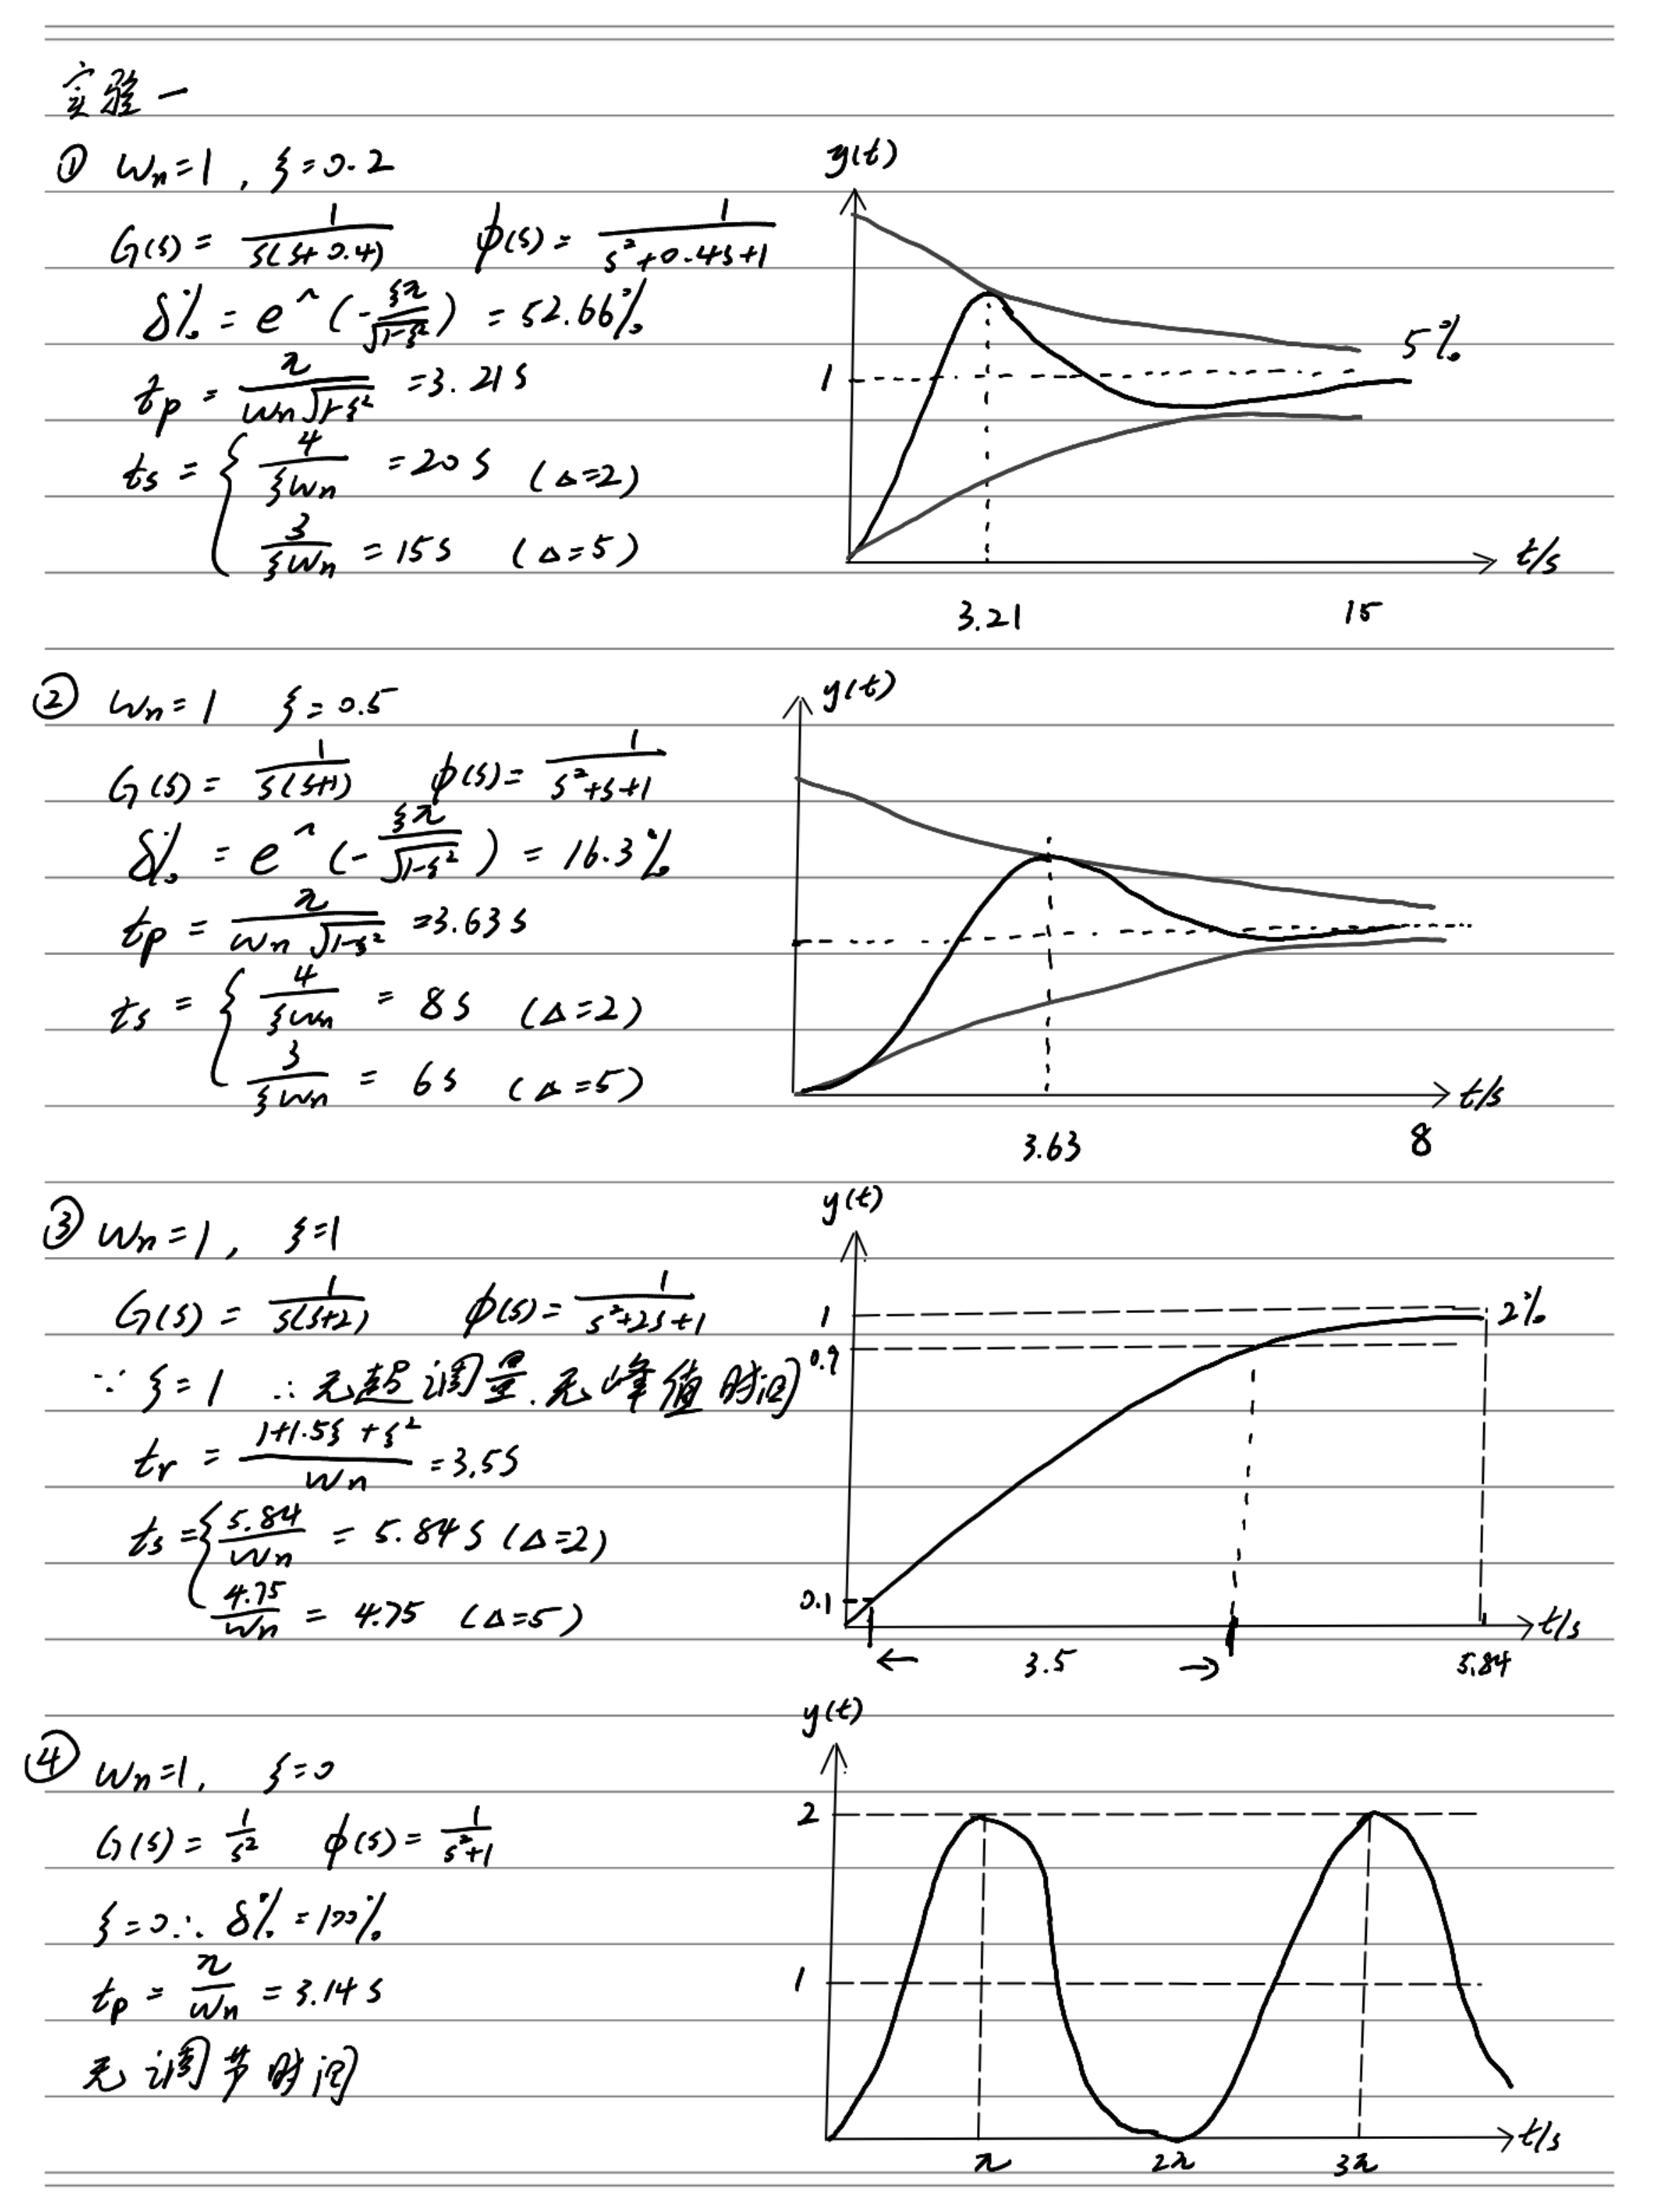 实验一
① Wn=1, ξ=0.2
G(s)= 1/s(s+0.4) φ(s)= 1/s²+0.4s+1
δ% = e^(-ξπ/√1-ξ²) = 52.66%
tp = π/Wn√1-ξ² =3.21s
ts = { 4/ξWn =20s (Δ=2)
3/ξWn = 15s (Δ=5)
y(t)
5%
1
t/s
3.21 15
② Wn=1 ξ=0.5
G(s)= 1/s(s+1) φ(s)= 1/s²+s+1
δ% = e^(-ξπ/√1-ξ²) = 16.3%
tp = π/Wn√1-ξ² =3.63s
ts = { 4/ξWn = 8s (Δ=2)
3/ξWn = 6s (Δ=5)
y(t)
t/s
3.63 8
③ Wn=1, ξ=1
G(s)= 1/s(s+2) φ(s)= 1/s²+2s+1
∵ξ=1 ∴无超调量.无峰值时间
tr = 1+1.5ξ+ξ²/Wn =3.5s
ts={ 5.84/Wn = 5.84s (Δ=2)
4.75/Wn = 4.75 (Δ=5)
y(t)
1 2%
0.9
0.1
t/s
← 3.5 → 5.84
④ Wn=1, ξ=0
G(s)= 1/s² φ(s)= 1/s²+1
ξ=0∴ δ%=100%
tp = π/Wn = 3.14s
无调节时间
y(t)
2
1
t/s
π 2π 3π